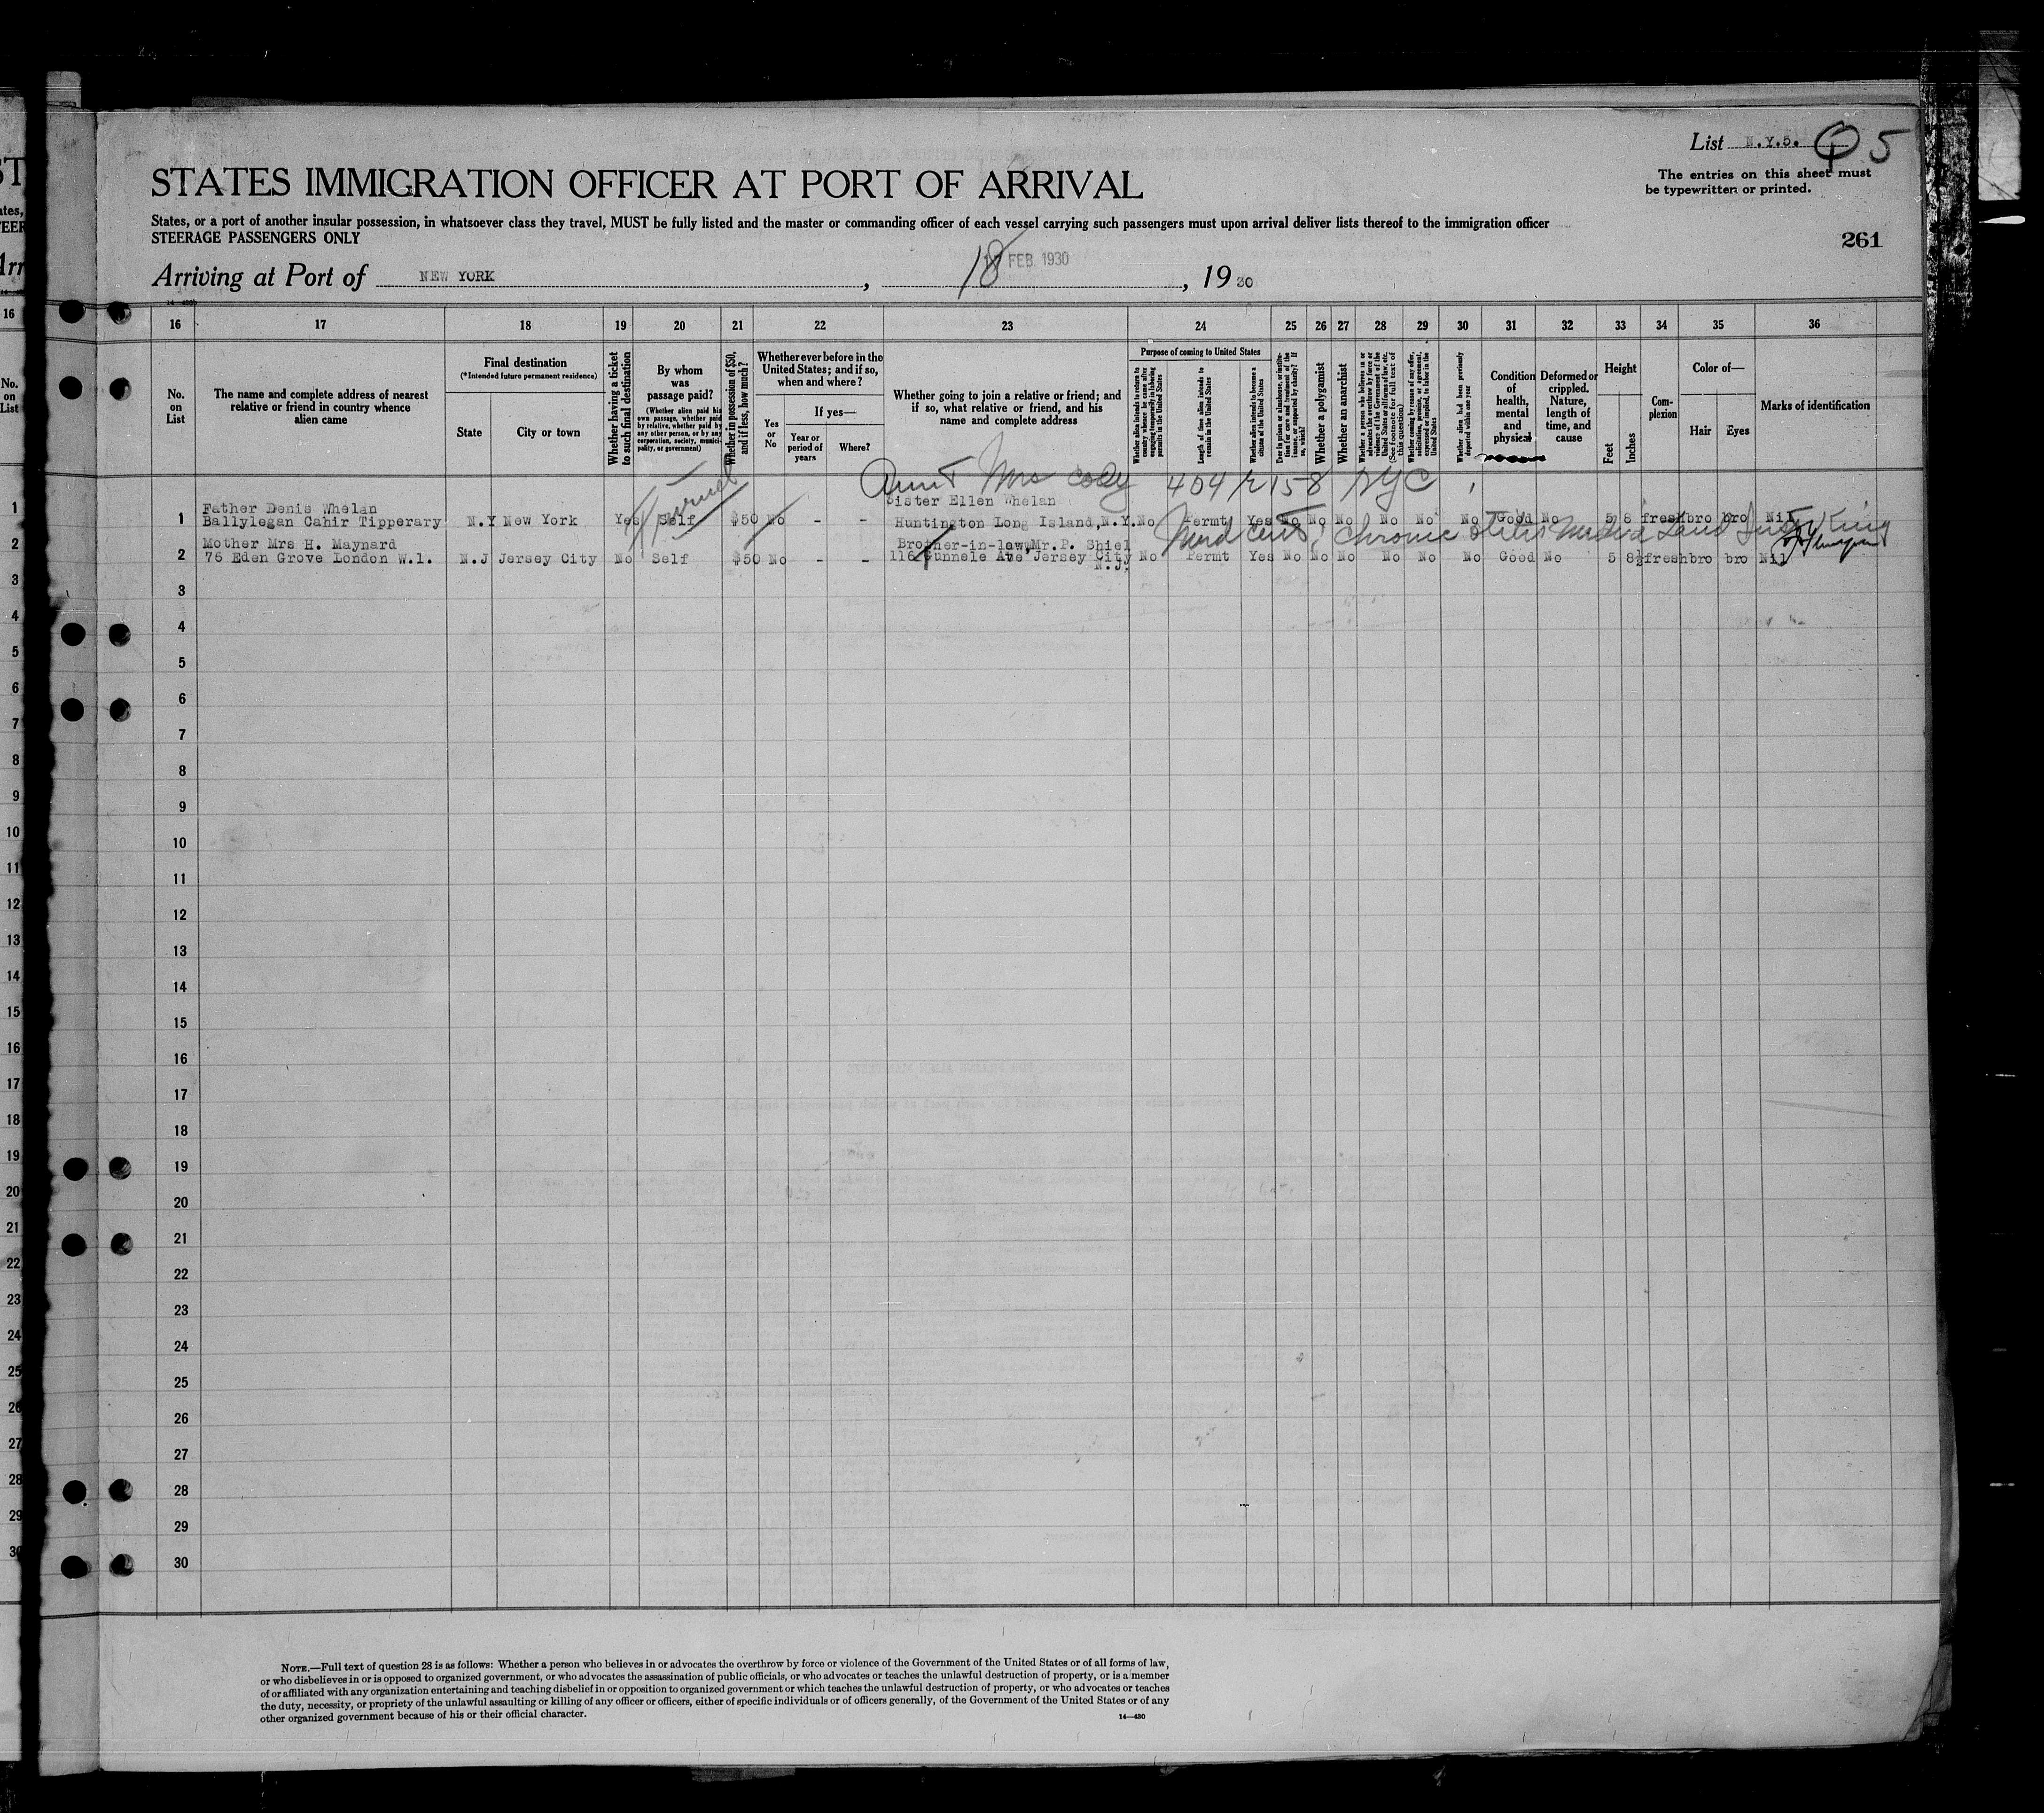 List N.Y.5. 5
The entries on this sheet must
be typewritten or printed.
STATES IMMIGRATION OFFICER AT PORT OF ARRIVAL
States, or a port of another insular possession, in whatsoever class they travel, MUST be fully listed and the master or commanding officer of each vessel carrying such passengers must upon arrival deliver lists thereof to the immigration officer
STEERAGE PASSENGERS ONLY
261
Arriving at Port of NEW YORK, 18 FEB. 1930, 19 30
16 17 18 19 20 21 22 23 24 25 26 27 28 29 30 31 32 33 34 35 36
No. on List
The name and complete address of nearest
relative or friend in country whence
alien came
Final destination
(*Intended future permanent residence)
State
City or town
Whether having a ticket
to such final destination
By whom
was
passage paid?
(Whether alien paid his
own passage, whether paid
by relative, whether paid by
any other person, or by any
corporation, society, munici-
pality, or government)
Whether in possession of $50,
and if less, how much?
Whether ever before in the
United States; and if so,
when and where?
Yes
or
No
If yes—
Year or
period of
years
Where?
Whether going to join a relative or friend; and
if so, what relative or friend, and his
name and complete address
Purpose of coming to United States
Length of time alien intends to
remain in the United States
Whether alien intends to become a
citizen of the United States
Whether a polygamist
Whether an anarchist
Whether alien had been previously
deported within one year
Condition
of
health,
mental
and
physical
Deformed or
crippled.
Nature,
length of
time, and
cause
Height
Feet
Inches
Com-
plexion
Color of—
Hair
Eyes
Marks of identification
Aunt Mrs 404 E 158 NYC
Father Denis Whelan Sister Ellen Whelan
1 Ballylegan Cahir Tipperary N.Y New York Yes Self $50 No - - Huntington Long Island,N.Y. No Permt Yes No No No No No No Good No 5 8 fresh bro bro Nil
Med cert; Chronic otitis Media
Mother Mrs H. Maynard Brother-in-law,Mr.P. Shiel
2 76 Eden Grove London W.1. N.J Jersey City No Self $50 No - - 116 Gunnele Ave Jersey City No Permt Yes No No No No No No Good No 5 8½ fresh bro bro Nil
N.J.
3
4
5
6
7
8
9
10
11
12
13
14
15
16
17
18
19
20
21
22
23
24
25
26
27
28
29
30
NOTE.—Full text of question 28 is as follows: Whether a person who believes in or advocates the overthrow by force or violence of the Government of the United States or of all forms of law,
or who disbelieves in or is opposed to organized government, or who advocates the assassination of public officials, or who advocates or teaches the unlawful destruction of property, or is a member
of or affiliated with any organization entertaining and teaching disbelief in or opposition to organized government or which teaches the unlawful destruction of property, or who advocates or teaches
the duty, necessity, or propriety of the unlawful assaulting or killing of any officer or officers, either of specific individuals or of officers generally, of the Government of the United States or of any
other organized government because of his or their official character.
14—430